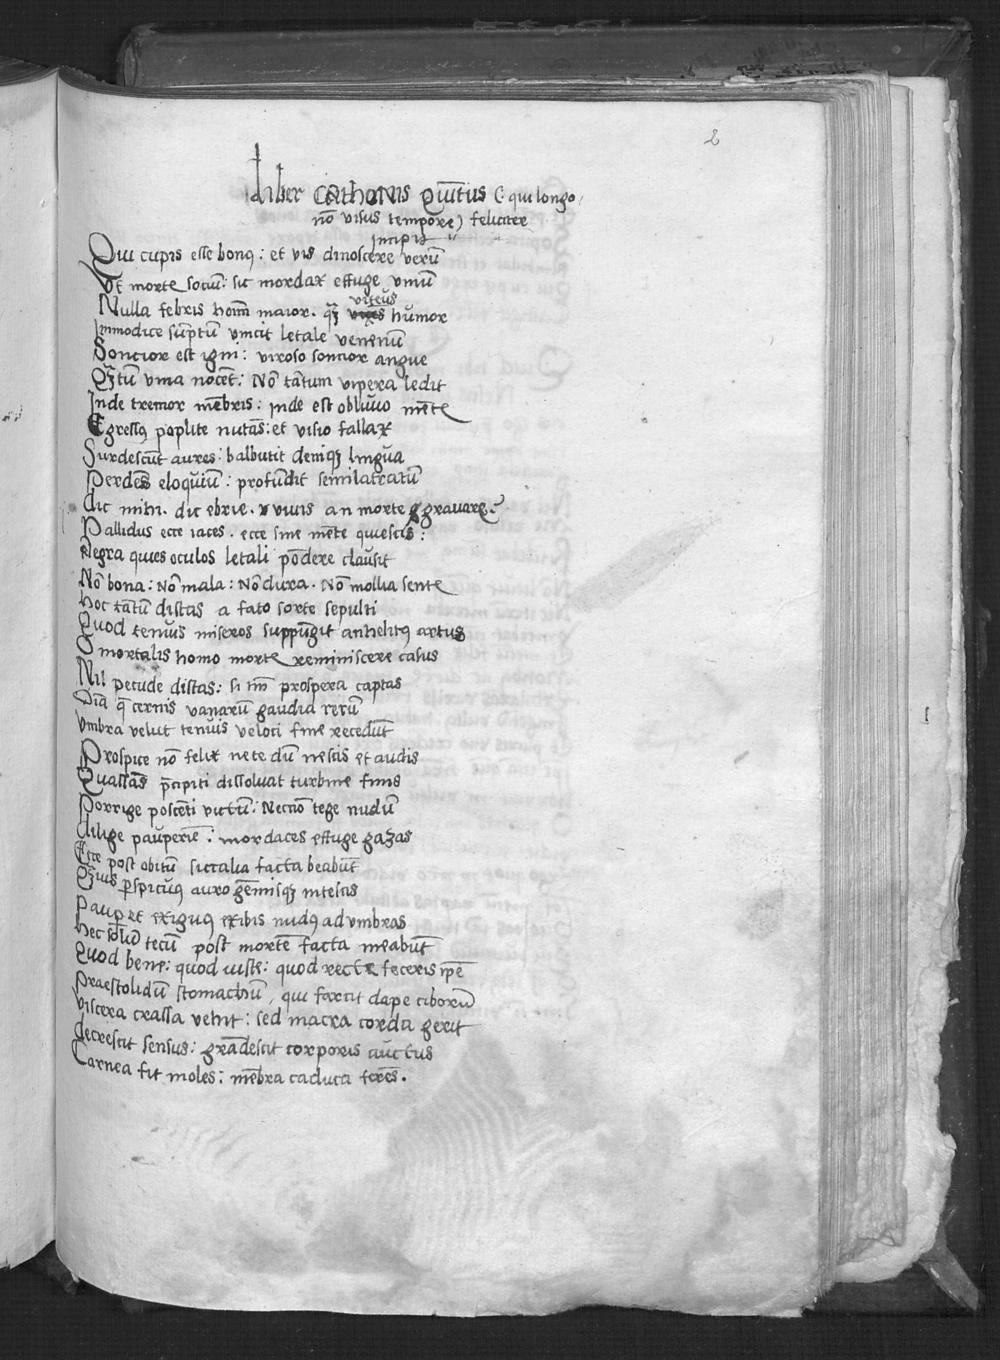 2
Liber Cathonis Quītus (qui longo
nō visus tempore) feliciter
incipit
Qui cupis esse bonꝰ: et vis dinoscere verū
Vt morte sociū: sic mordax effuge vinū
Nulla febris hoīm maior. qꝫ viteus humor
Immodice sūptū vincit letale venenū
Soncior est igni: viroso soncior angue
Qꝫtū vina nocēt: Nō tātum vipera ledit
Inde tremor mēbris: inde est oblivio mēte
Egressꝰ poplite nutās: et visio fallax
Surdescūt aures: balbutit deniqꝫ lingua
Perdēs eloquiū: profūdit semilatratū
dic mihi. dic ebrie. vivis an morte gravare?
Pallidus ecce iaces. ecce sine mēte quiescis:
Aegra quies oculos letali pōdere clausit
Nō bona: Nō mala: Nō dura. Nō mollia sente
hoc tātū distas a fato sorte sepulti
Quod tenuis miseros suppūgit anhelitꝰ artus
O mortalis homo morte reminiscere casus
Nil pecude distas: si tm̄ prospera captas
Oīa q̄ cernis vanarū gaudia rerū
vmbra velut tenuis veloci fine recedūt
Prospice nō felix ne te dū nescis et audis
Quassās p̄cipiti dissolvat turbine finis
Porrige poscēti victū: Necnō tege nudū
dilige pauperiē: mordaces effuge gazas
Ecce post obitū sic talia facta beabūt
Qꝫvis p̱spicuꝰ auro gēmisqꝫ nitescis
Paup̱ et exiguꝰ exibis nudꝰ ad vmbras
hec solū tecū post mortē facta meabūt
Quod bene: quod iuste: quod recte feceris ipē
Praestolidū stomachū, qui farcit dape ciborū
viscera crassa vehit: sed macra corda gerit
decrescit sensus: grādescit corporis auctus
Carnea fit moles: mēbra caduca ferēs.